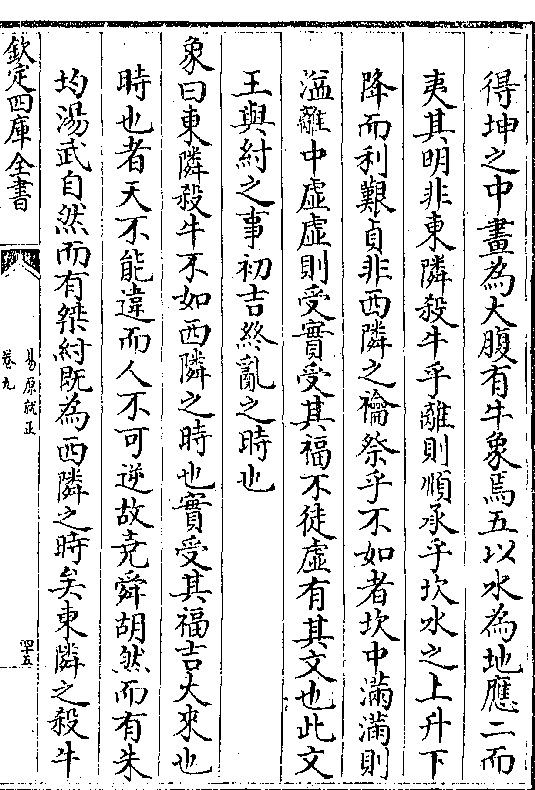 得坤之中畫為大腹有牛象焉五以水為地應二而
夷其明非東隣殺牛乎離則順承乎坎水之上升下
降而利艱貞非西隣之禴祭乎不如者坎中滿滿則
溢離中虛虛則受實受其福不徒虛有其文也此文
王與紂之事初吉終亂之時也
象曰東隣殺牛不如西隣之時也實受其福吉大來也
時也者天不能違而人不可逆故堯舜胡然而有朱
均湯武自然而有桀紂既為西隣之時矣東隣之殺牛
欽定四庫全書
易原就正
卷九
四十五